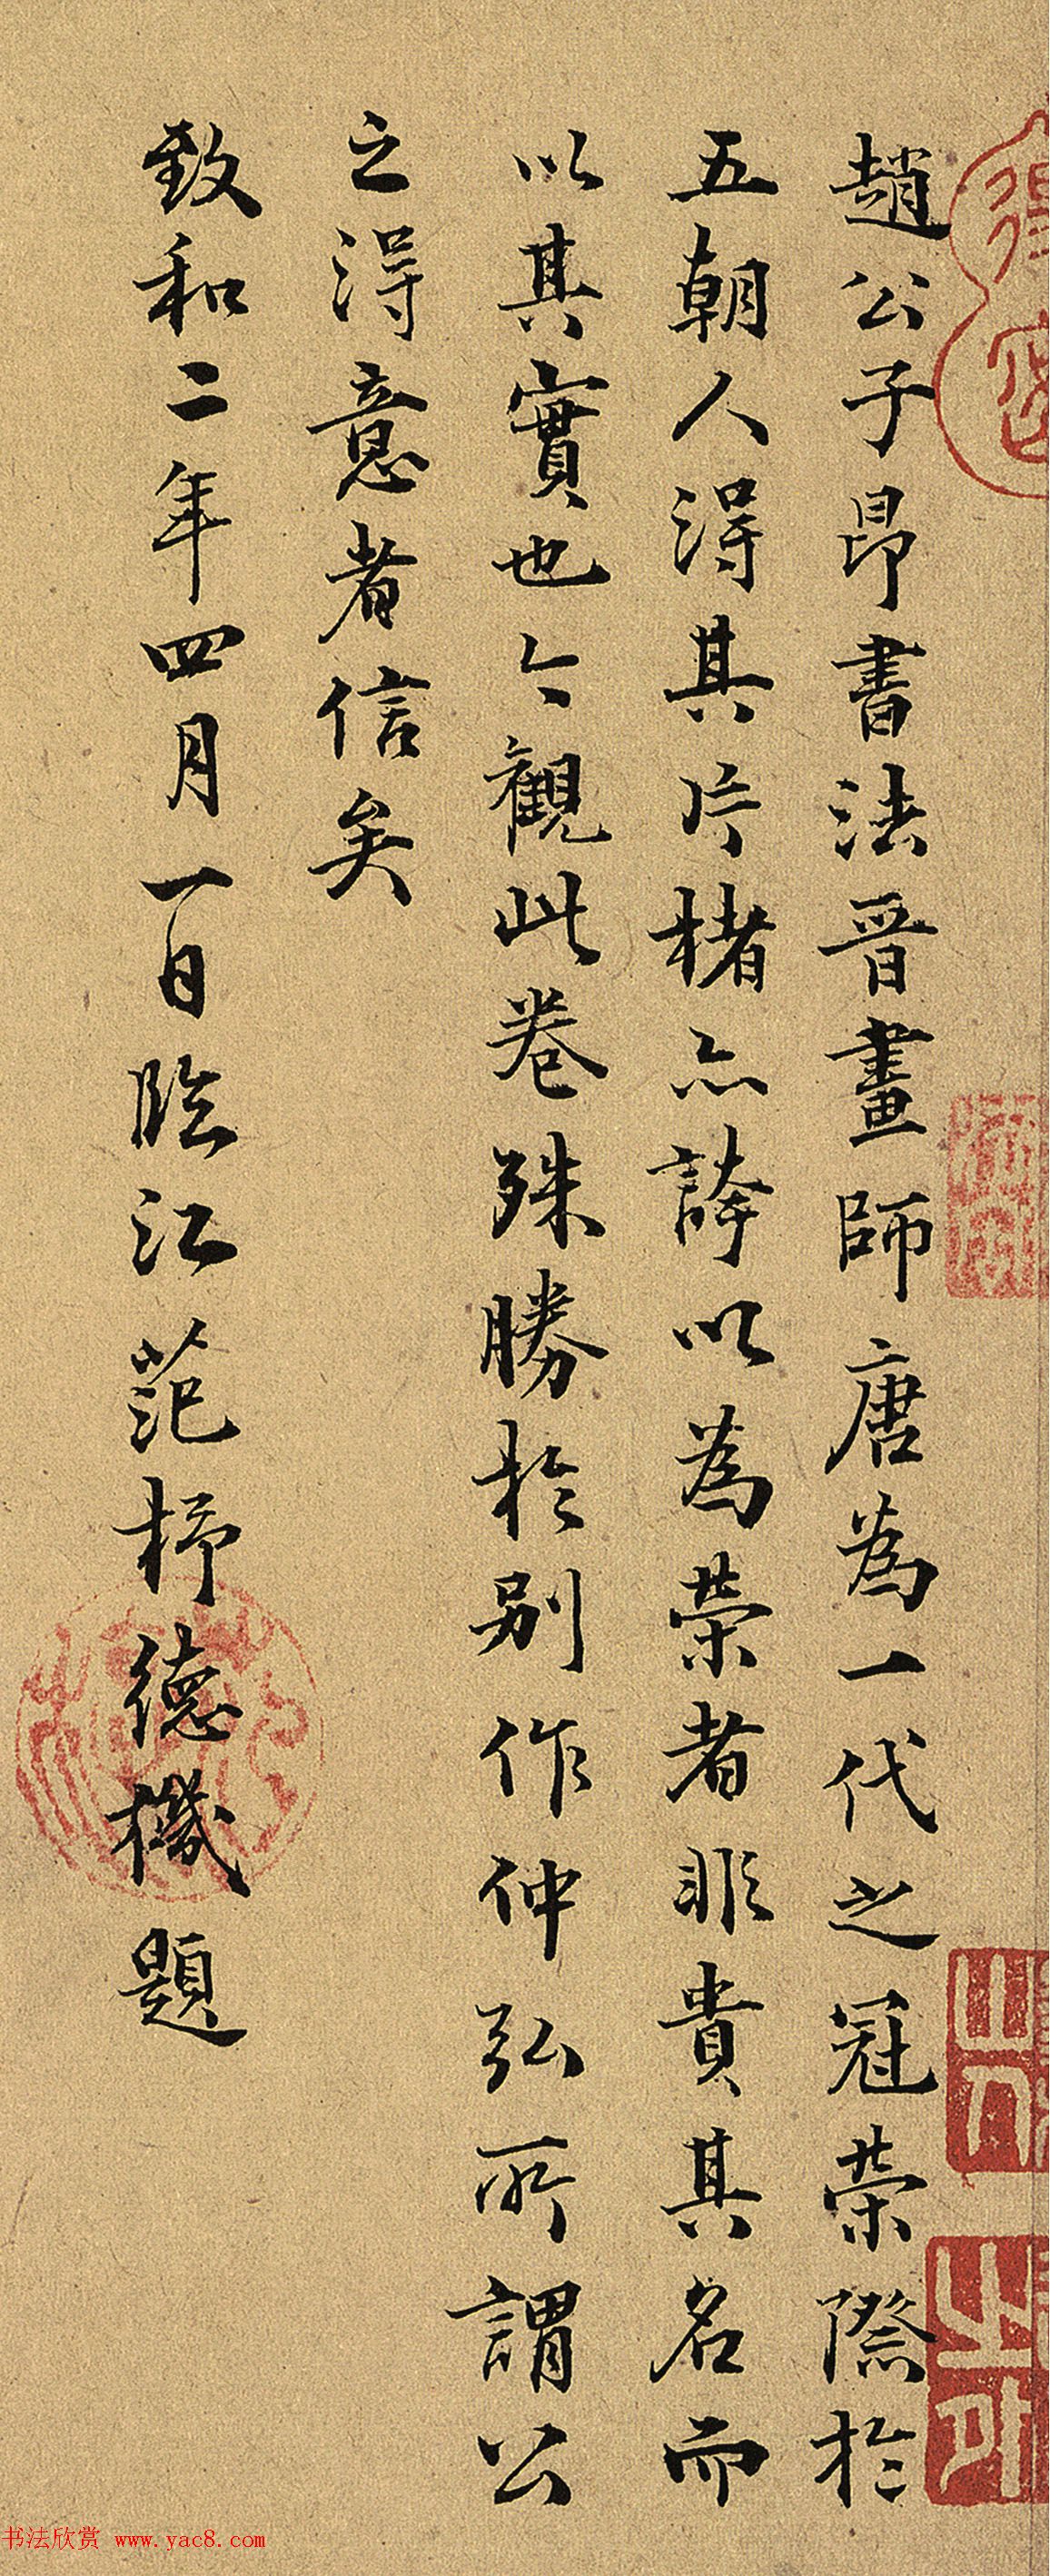 趙公子昂書法晉畫師唐為一代之冠榮際於
五朝人淂其片楮亦誇以為荣者非貴其名而
以其實也今觀此卷殊勝於别作仲弘所謂公
之淂意者信矣
致和二年四月一日臨江范杼德機題
书法欣赏 www.yac8.com